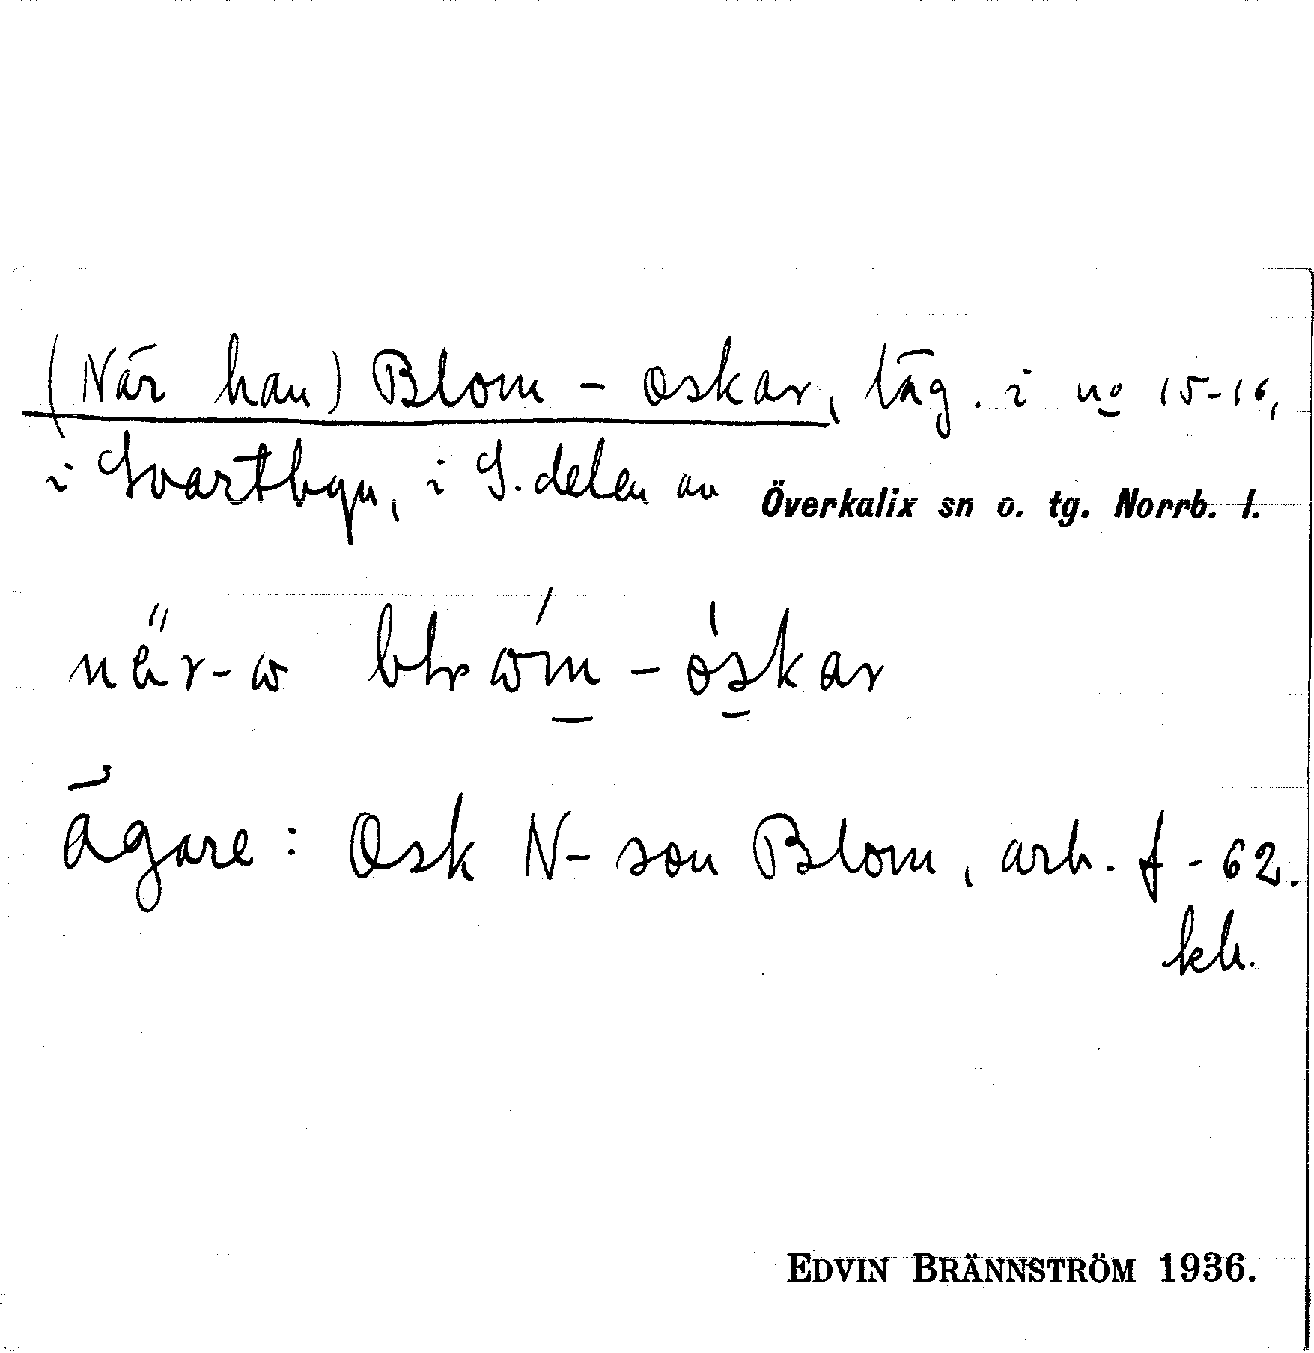 (När han) Blom-Oskar, läg. i no 15-16,
i Svartbyn, i S. delen av Överkalix sn o. tg. Norrb. l.
-óskar
ägare: Osk N-son Blom, arb. f -62.
kb.
EDVIN BRÄNNSTRÖM 1936.